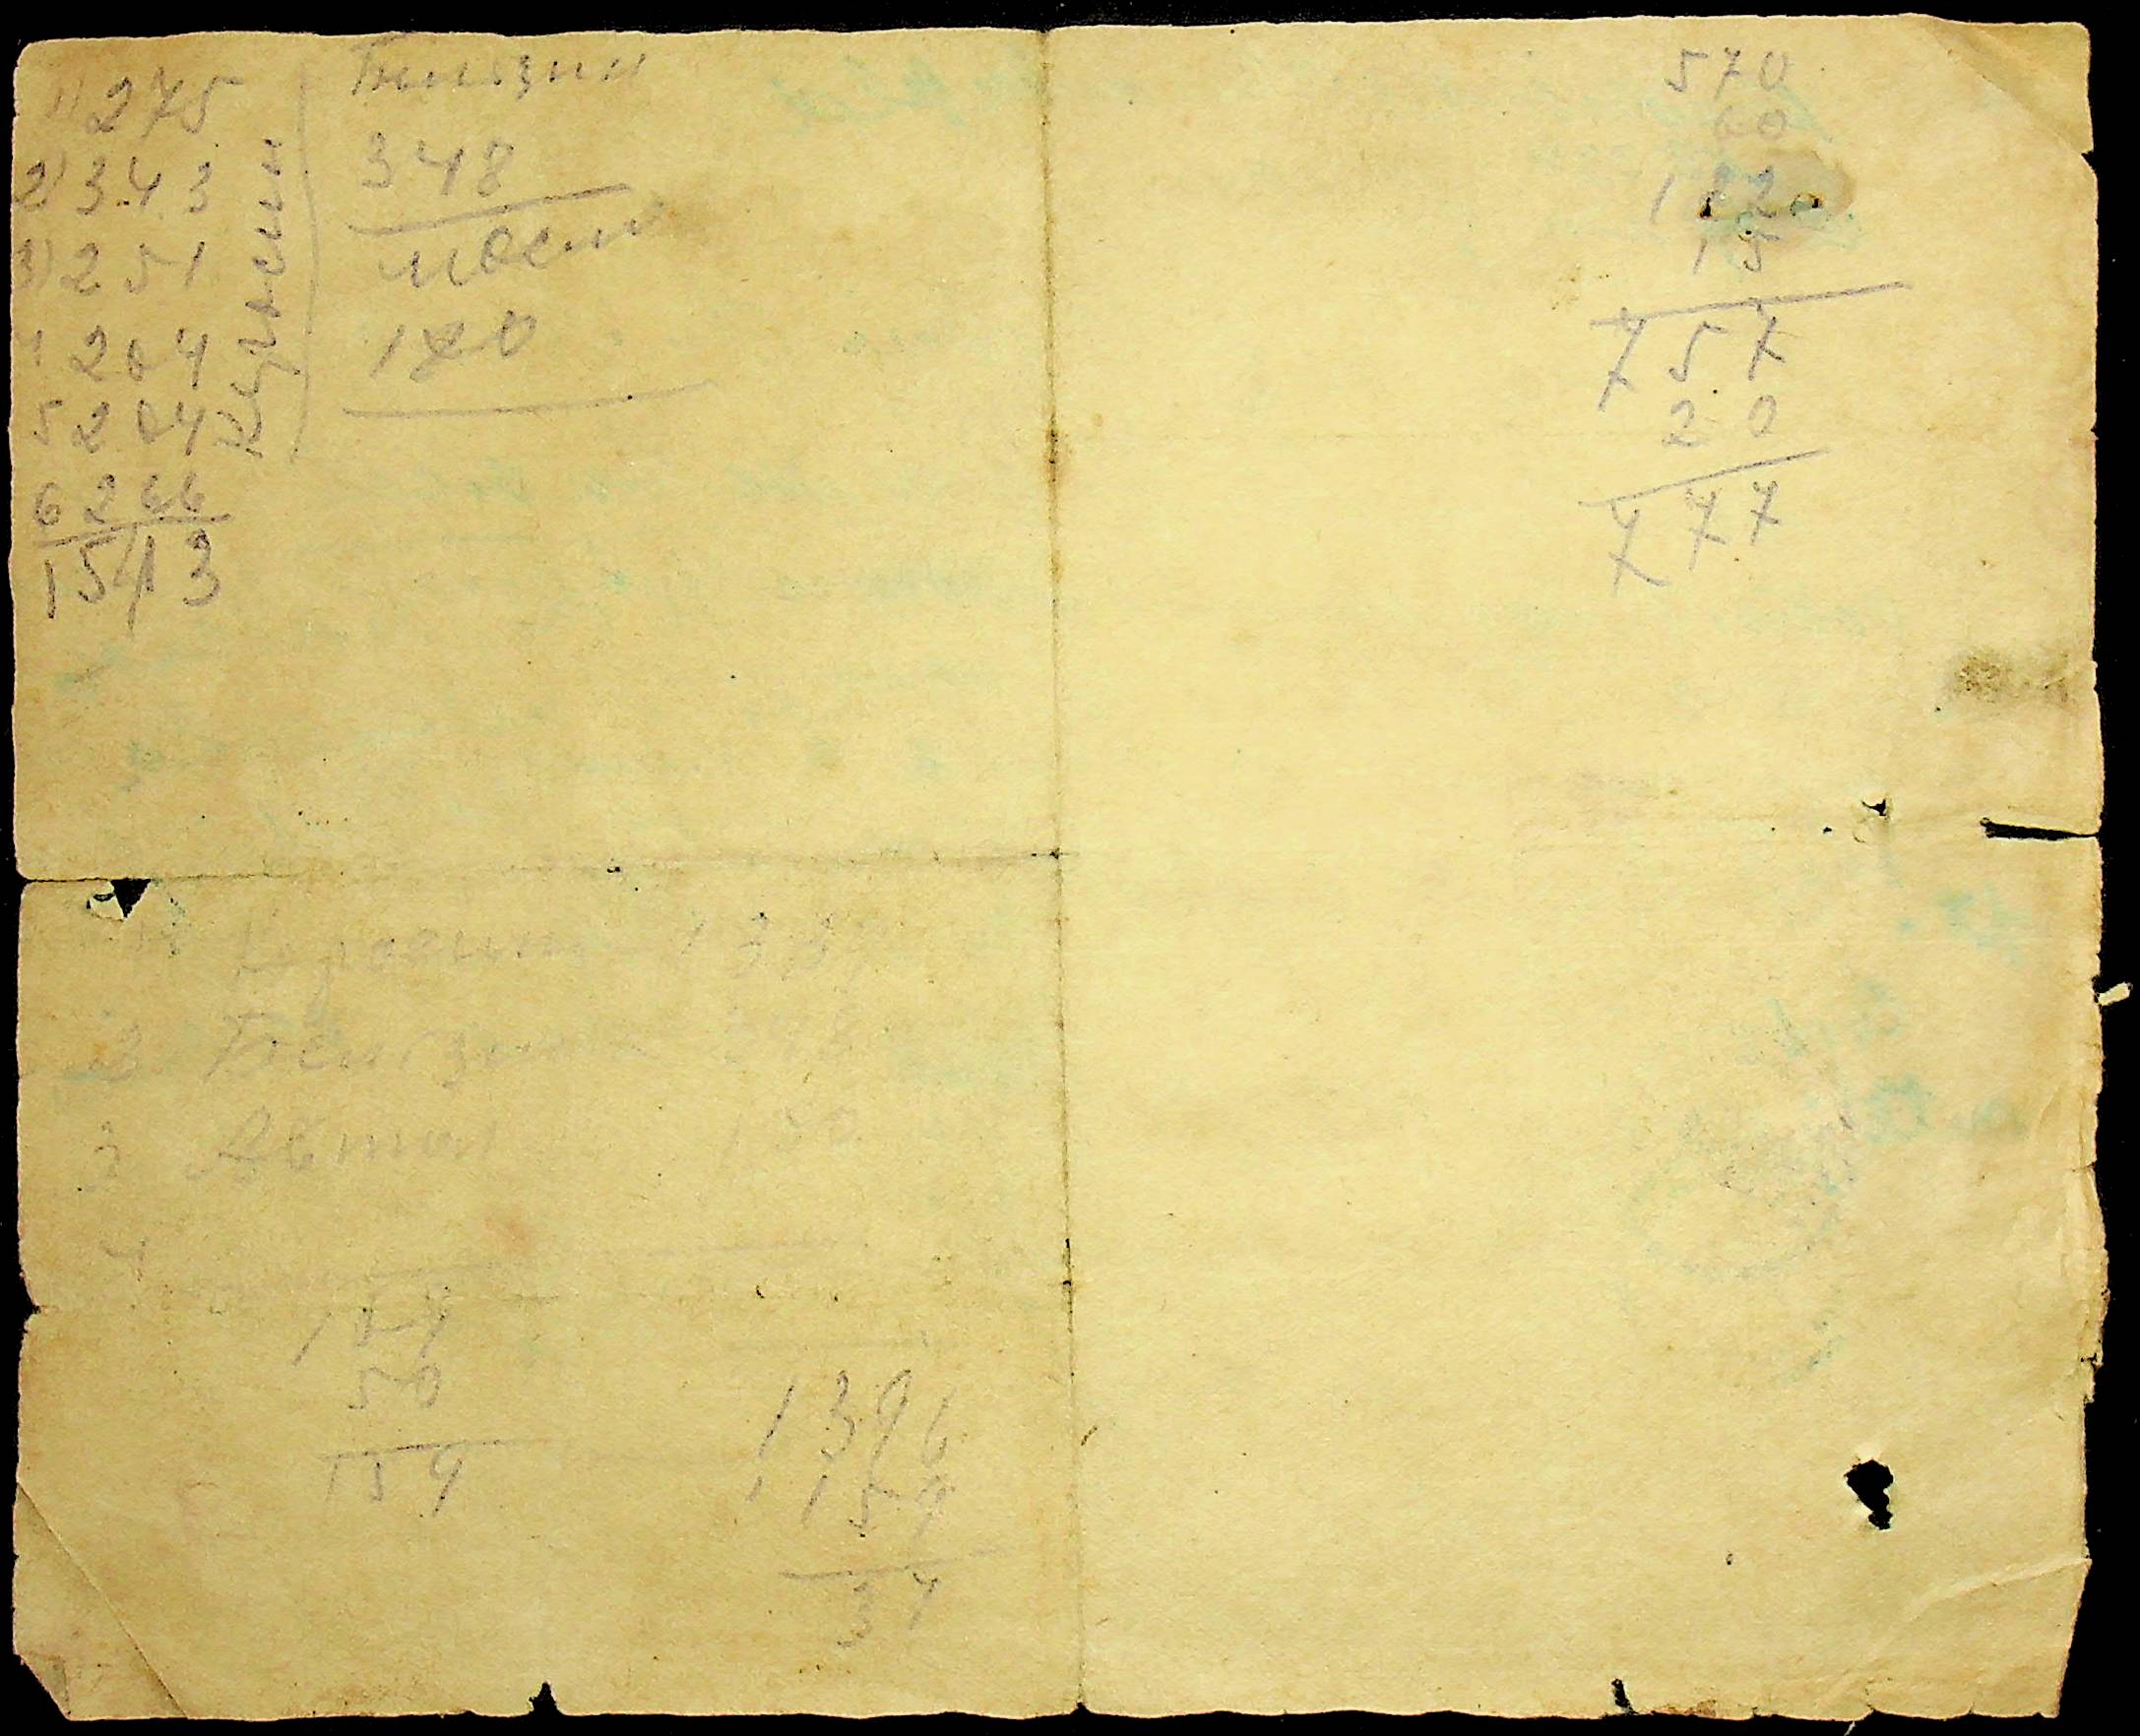 1) 275
2) 343
3) 251
4 264
5 204
6 266
1513
Керосин
Бензин
348
масло
120
570
60
122
15
757
20
777
Керосин - 133
2 Бензин - 348
3 Автол 120
4
104
50
154
1396
1154
34